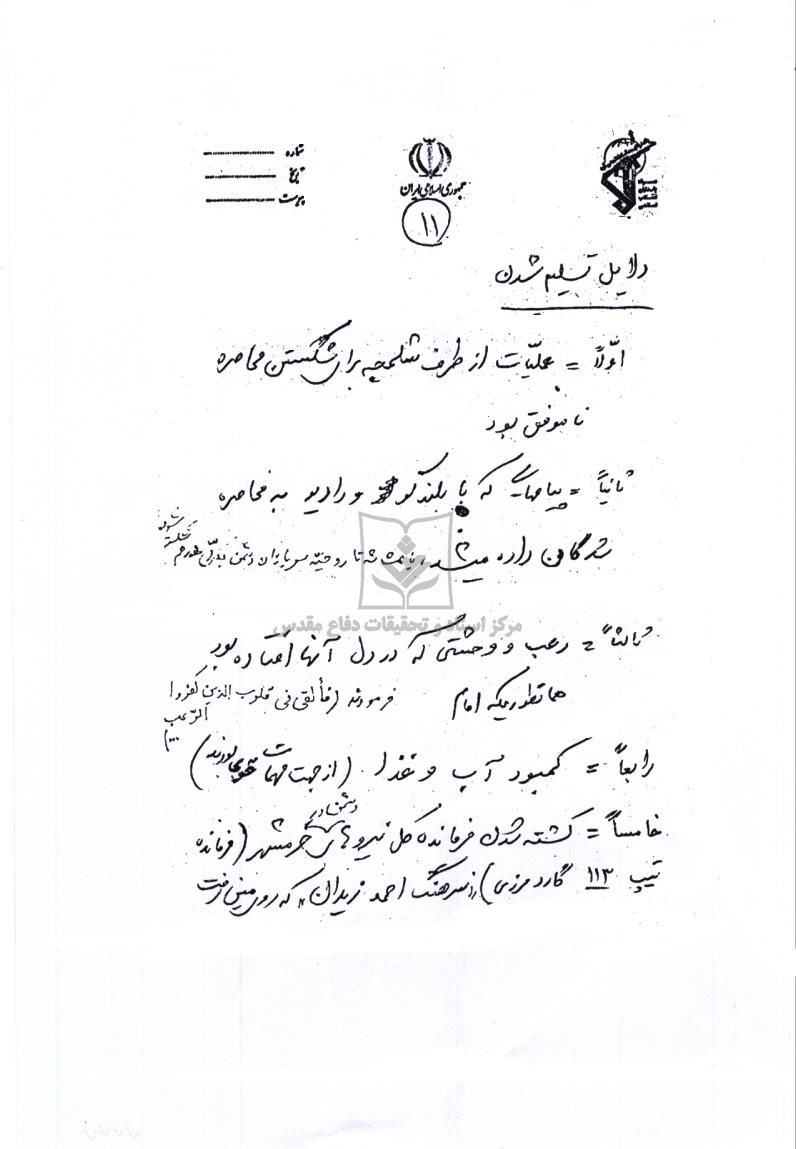 شماره
تاریخ
پیوست
جمهوری اسلامی ایران
۱۱
دلایل تسلیم شدن
اوّلاً = عملیّات از طرف شلمچه برای شکستن محاصره
ناموفق بود
ثانیاً = پیامهائی که با بلندگو و رادیو به محاصره
شدگان داده میشد، باعث شد تا روحیّه سربازان دشمن
شکسته شود
مرکز اسناد و تحقیقات دفاع مقدس
ثالثاً = رعب و وحشتی که در دل آنها افتاده بود
همانطوریکه امام فرمودند (فألقی فی قلوب الذین کفروا
الرّعب ...)
رابعاً = کمبود آب و غذا (از جهت مهمات قوی بودند)
خامساً = کشته شدن فرمانده کل نیروهای دشمن در خرمشهر (فرمانده
تیپ ۱۱۳ گارد مرزی) «سرهنگ احمد زیدان» که روی مین رفت